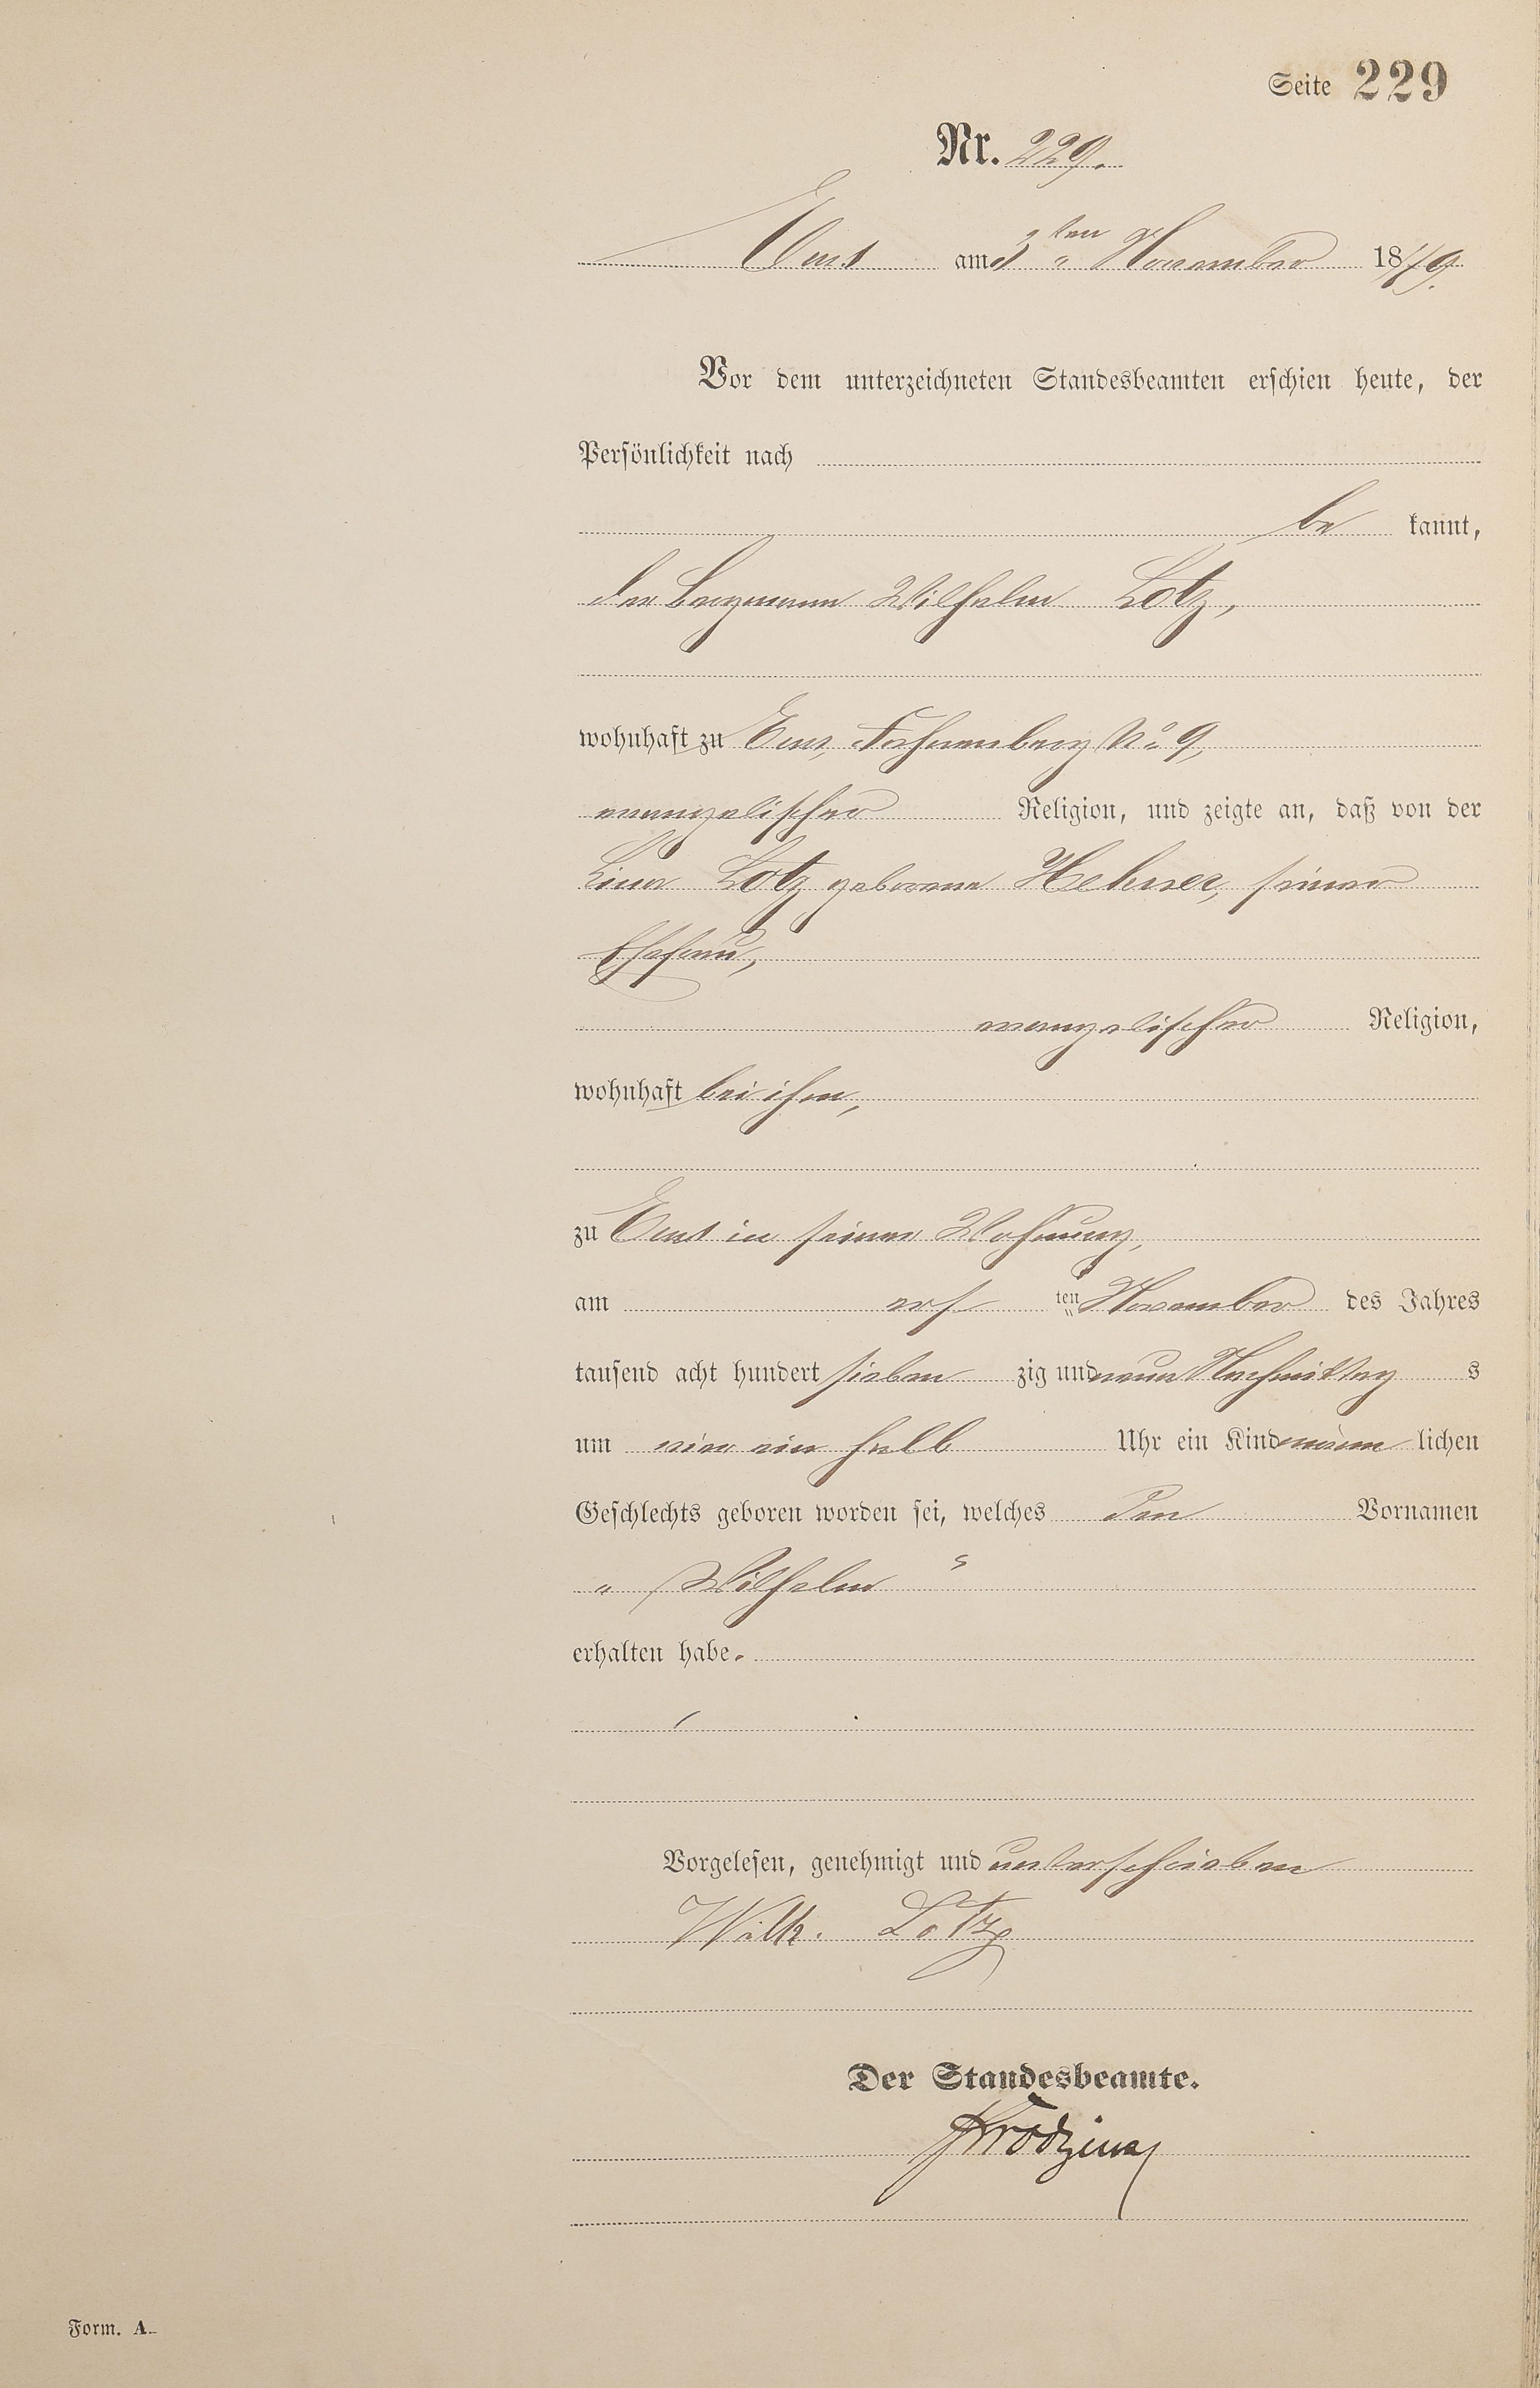 Seite 229
Nr. 229.
Ems am 3ten November 1879.
Vor dem unterzeichneten Standesbeamten erschien heute, der
Persönlichkeit nach
be kannt,
der Bergmann Wilhelm Lotz,
wohnhaft zu Ems, No 9,
evangelischer Religion, und zeigte an, daß von der
Lina Lotz geborene Hehner, seiner
Ehefrau,
evangelischer Religion,
wohnhaft bei ihm,
zu Ems in seiner Wohnung,
am ersten November des Jahres
tausend acht hundert sieben zig und neun Nachmittag s
um vier ein halb Uhr ein Kind männ lichen
Geschlechts geboren worden sei, welches den Vornamen
„ Wilhelm “
erhalten habe.
Vorgelesen, genehmigt und unterschrieben
Wilh. Lotz
Der Standesbeamte.
Form. A.